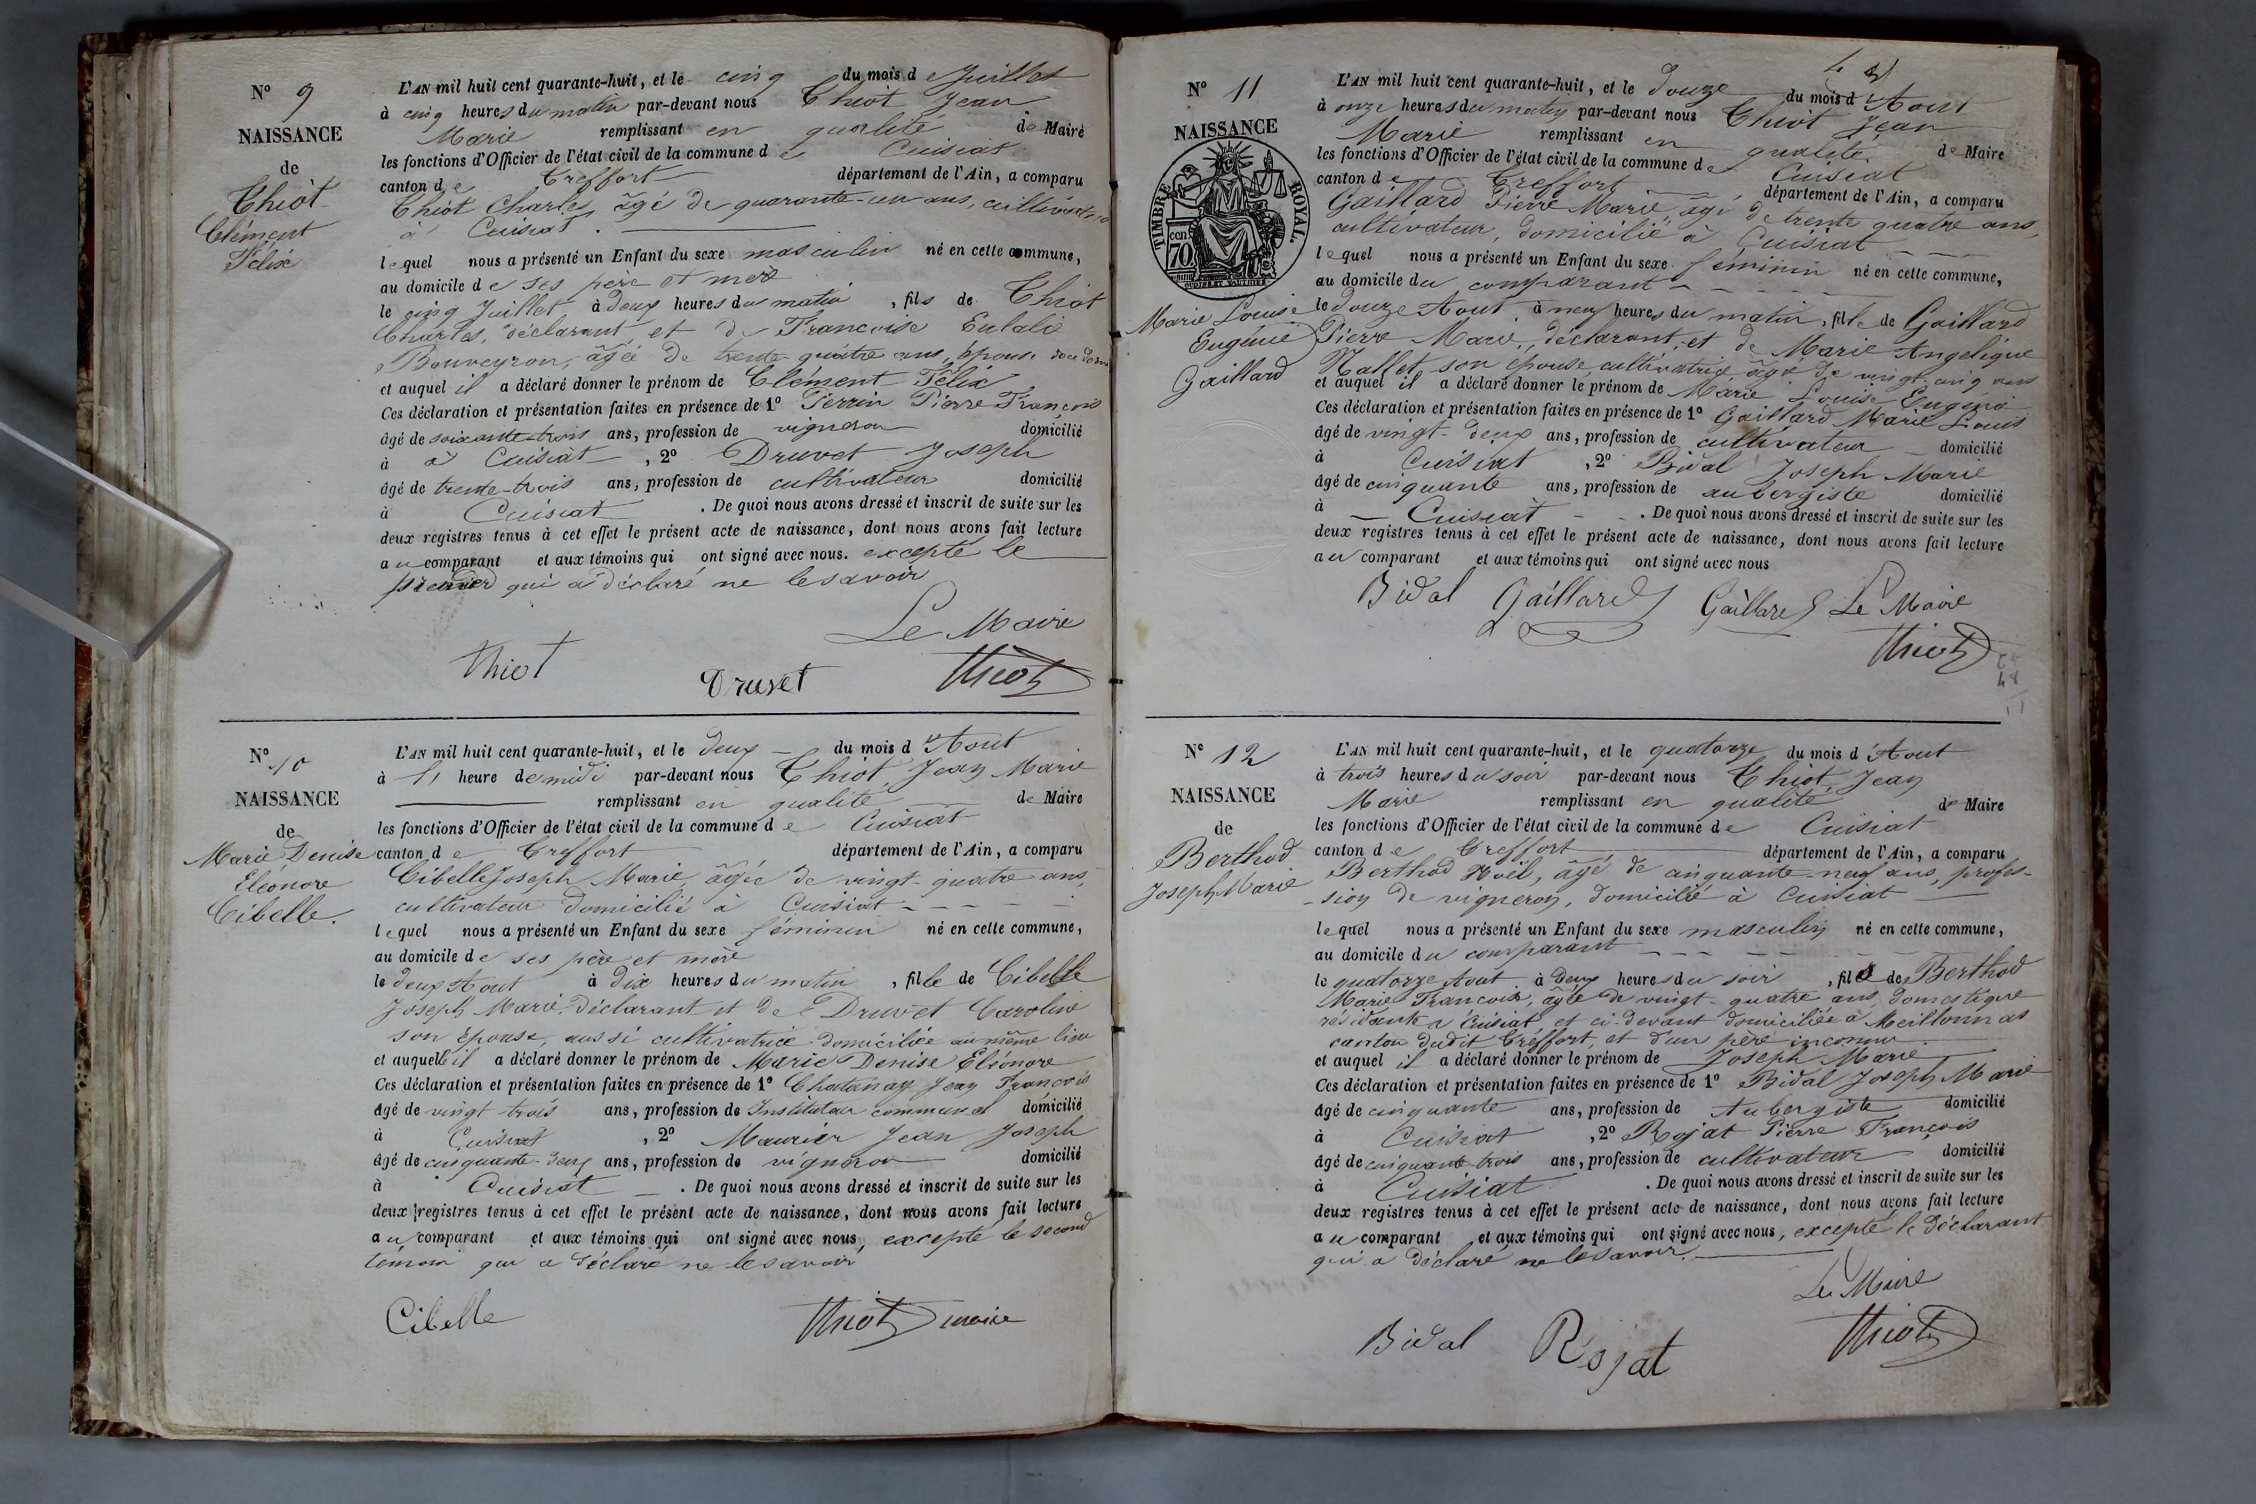 N° 9
NAISSANCE
de
Thiot
Clément
Félix
L'AN mil huit cent quarante-huit, et le cinq du mois de Juillet
à cinq heures du matin par-devant nous Thiot Jean
Marie remplissant en qualité de Maire
les fonctions d'Officier de l'état civil de la commune de Cuisiat
canton de Treffort département de l'Ain, a comparu
Thiot Charles, âgé de quarante-un ans, cultivateur
à Cuisiat.
lequel nous a présenté un Enfant du sexe masculin né en cette commune,
au domicile de ses père et mère
le cinq Juillet à deux heures du matin, fils de Thiot
Charles, déclarant et de Francoise Eulalie
Bouveyron, âgée de trente-quatre ans, épouse
et auquel il a déclaré donner le prénom de Clément Félix
Ces déclaration et présentation faites en présence de 1° Perrin Pierre François
âgé de soixante-trois ans, profession de vigneron domicilié
à à Cuisiat, 2° Druvet Joseph
âgé de trente-trois ans, profession de cultivateur domicilié
à Cuisiat. De quoi nous avons dressé et inscrit de suite sur les
deux registres tenus à cet effet le présent acte de naissance, dont nous avons fait lecture
au comparant et aux témoins qui ont signé avec nous. excepté le
premier qui a déclaré ne le savoir
Le Maire
Thiot Druvet Thiot
N° 10
NAISSANCE
de
Marie Denise
Eléonore
Cibelle.
L'AN mil huit cent quarante-huit, et le deux du mois d'Aout
à heure de midi par-devant nous Thiot, Jean Marie
remplissant en qualité de Maire
les fonctions d'Officier de l'état civil de la commune de Cuisiat
canton de Treffort département de l'Ain, a comparu
Cibelle Joseph Marie, âgée de vingt-quatre ans,
cultivateur domicilié à Cuisiat
lequel nous a présenté un Enfant du sexe féminin né en cette commune,
au domicile de ses père et mère
le deux Aout à dix heures du matin, fille de Cibelle
Joseph Marie, déclarant et de Druvet Caroline
son épouse, aussi cultivatrice domiciliée au même lieu
et auquelle il a déclaré donner le prénom de Marie Denise Eléonore
Ces déclaration et présentation faites en présence de 1° Chatanay Jean François
âgé de vingt-trois ans, profession de Instituteur communal domicilié
à Cuisiat, 2° Maurier Jean Joseph
âgé de cinquante-deux ans, profession de vigneron domicilié
à Cuisiat. De quoi nous avons dressé et inscrit de suite sur les
deux registres tenus à cet effet le présent acte de naissance, dont nous avons fait lecture
au comparant et aux témoins qui ont signé avec nous, excepté le second
témoin qui a déclaré ne le savoir
Cibelle Thiot maire
N° 11
NAISSANCE
TIMBRE ROYAL.
cen 70
Marie Louise
Eugénie
Gaillard
L'AN mil huit cent quarante-huit, et le douze du mois d'Aout
à onze heures du matin par-devant nous Thiot Jean
Marie remplissant en qualité de Maire
les fonctions d'Officier de l'état civil de la commune de Cuisiat
canton de Treffort département de l'Ain, a comparu
Gaillard Pierre Marie, âgé de trente quatre ans,
cultivateur, domicilié à Cuisiat
lequel nous a présenté un Enfant du sexe féminin né en cette commune,
au domicile du comparant
le douze Aout à neuf heures du matin, fille de Gaillard
Pierre Marie, déclarant, et de Marie Angelique
Mallet son épouse, cultivatrice âgée de vingt-cinq ans
et auquel il a déclaré donner le prénom de Marie Louise Eugénie
Ces déclaration et présentation faites en présence de 1° Gaillard Marie Louis
âgé de vingt-deux ans, profession de cultivateur domicilié
à Cuisiat, 2° Bidal Joseph Marie
âgé de cinquante ans, profession de aubergiste domicilié
à Cuisiat. De quoi nous avons dressé et inscrit de suite sur les
deux registres tenus à cet effet le présent acte de naissance, dont nous avons fait lecture
au comparant et aux témoins qui ont signé avec nous
Bidal Gaillard Gaillard Le Maire
Thiot
N° 12
NAISSANCE
de
Berthod
Joseph Marie
L'AN mil huit cent quarante-huit, et le quatorze du mois d'Aout
à trois heures du soir par-devant nous Thiot Jean
Marie remplissant en qualité de Maire
les fonctions d'Officier de l'état civil de la commune de Cuisiat
canton de Treffort département de l'Ain, a comparu
Berthod Noël, âgé de cinquante-neuf ans, profes-
sion de vigneron, domicilié à Cuisiat
lequel nous a présenté un Enfant du sexe masculin né en cette commune,
au domicile du comparant
le quatorze Aout à deux heures du soir, fils de Berthod
Marie Francoise, âgée de vingt-quatre ans, domestique
résidante à Cuisiat, et ci-devant domiciliée à Meillonnas
canton dudit Treffort, et d'un père inconnu
et auquel il a déclaré donner le prénom de Joseph Marie
Ces déclaration et présentation faites en présence de 1° Bidal Joseph Marie
âgé de cinquante ans, profession de Aubergiste domicilié
à Cuisiat, 2° Rojat Pierre François
âgé de cinquante-trois ans, profession de cultivateur domicilié
à Cuisiat. De quoi nous avons dressé et inscrit de suite sur les
deux registres tenus à cet effet le présent acte de naissance, dont nous avons fait lecture
au comparant et aux témoins qui ont signé avec nous, excepté le déclarant
qui a déclaré ne le savoir.
Le Maire
Bidal Rojat Thiot